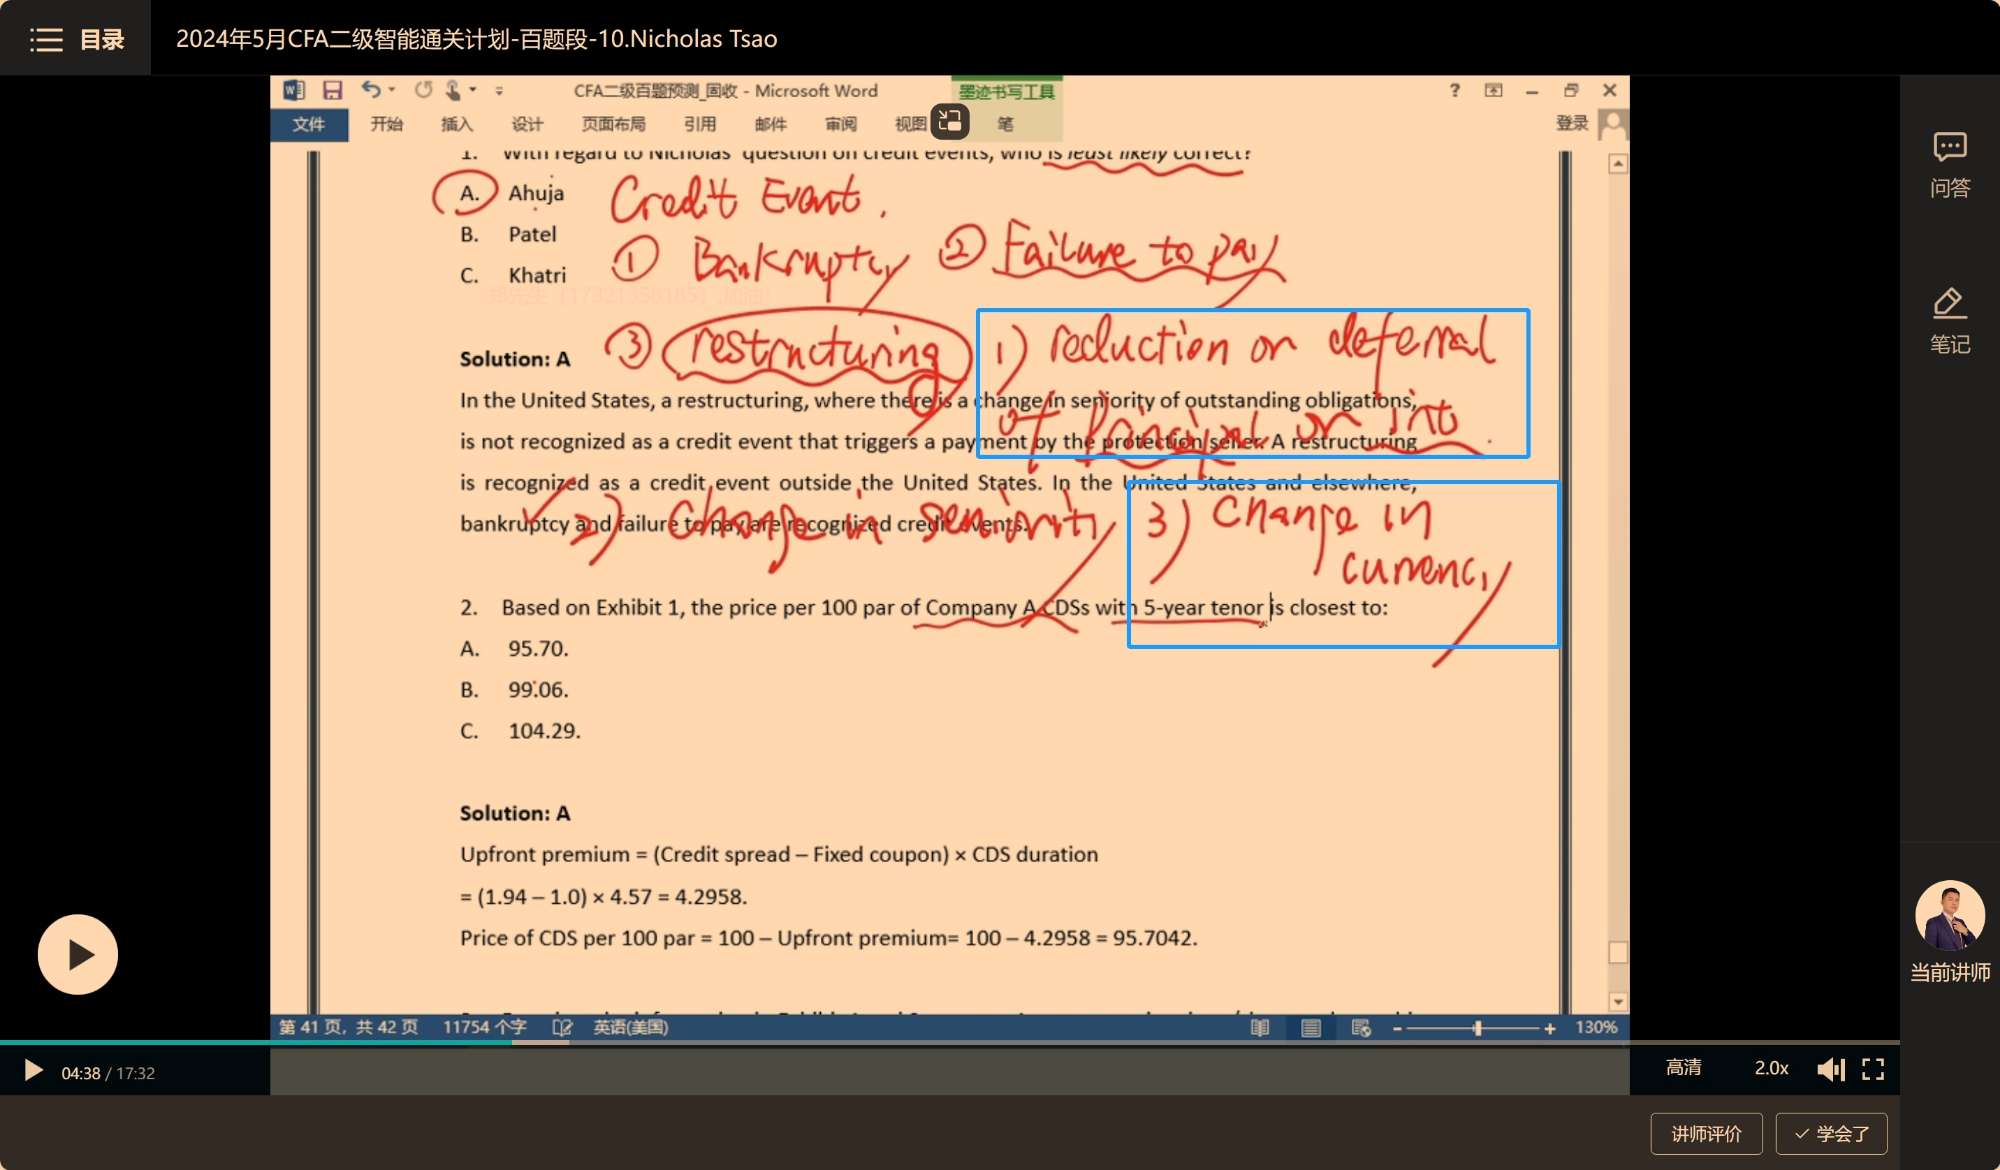 目录 2024年5月CFA二级智能通关计划-百题段-10.Nicholas Tsao
CFA二级百题预测_固收 - Microsoft Word 墨迹书写工具
文件 开始 插入 设计 页面布局 引用 邮件 审阅 视图 笔 登录
1. With regard to Nicholas' question on credit events, who is least likely correct?
A. Ahuja Credit Event.
B. Patel
① Bankruptcy ② Failure to pay
C. Khatri
③ restructuring 1) reduction or deferral
Solution: A
In the United States, a restructuring, where there is a change in seniority of outstanding obligations,
of principal or int
is not recognized as a credit event that triggers a payment by the protection seller. A restructuring
is recognized as a credit event outside the United States. In the United States and elsewhere,
bankruptcy and failure to pay are recognized credit events.
2) Change in seniority 3) Change in
currency
2. Based on Exhibit 1, the price per 100 par of Company A CDSs with 5-year tenor is closest to:
A. 95.70.
B. 99.06.
C. 104.29.
Solution: A
Upfront premium = (Credit spread – Fixed coupon) × CDS duration
= (1.94 – 1.0) × 4.57 = 4.2958.
Price of CDS per 100 par = 100 – Upfront premium= 100 – 4.2958 = 95.7042.
第 41 页，共 42 页 11754 个字 英语(美国) 130%
04:38 / 17:32 高清 2.0x
问答
笔记
当前讲师
讲师评价 学会了